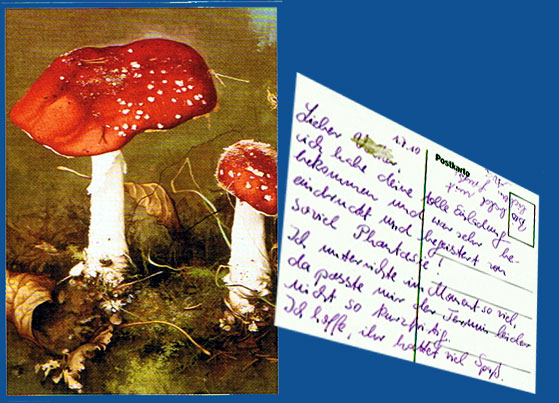 1.7.10
Lieber
Postkarte
ich habe deine tolle Einladung
bekommen und war sehr be-
eindruckt und begeistert von
soviel Phantasie!
Ich unterrichte im Moment so viel,
da passte mir der Termin leider
nicht so kurzfristig.
Ich hoffe, ihr hattet viel Spaß.